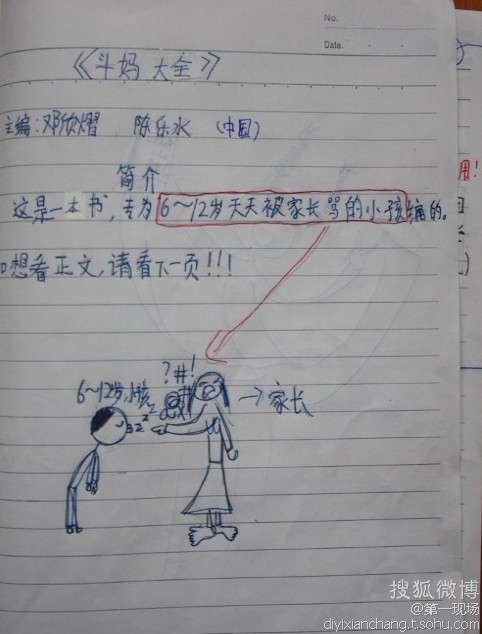 No.
Date.
《斗妈大全》
主编:邓欣熠 陈乐水 (中国)
简介
这是一本书,专为6～12岁天天被家长骂的小孩编的。
想看正文,请看下一页!!!
?#!
6～12岁小孩
→家长
用!
搜狐微博
@第一现场
diyixianchang.t.sohu.com